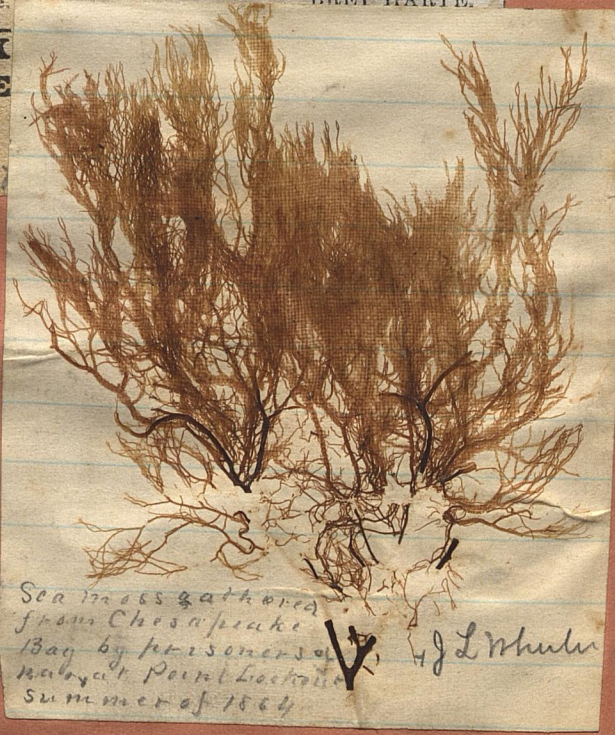 BRET HARTE.
K
E
Sea moss gathered
from Chesapeake
Bay by prisoners of
war, at Point Lookout
Summer of 1864
J L Wheeler